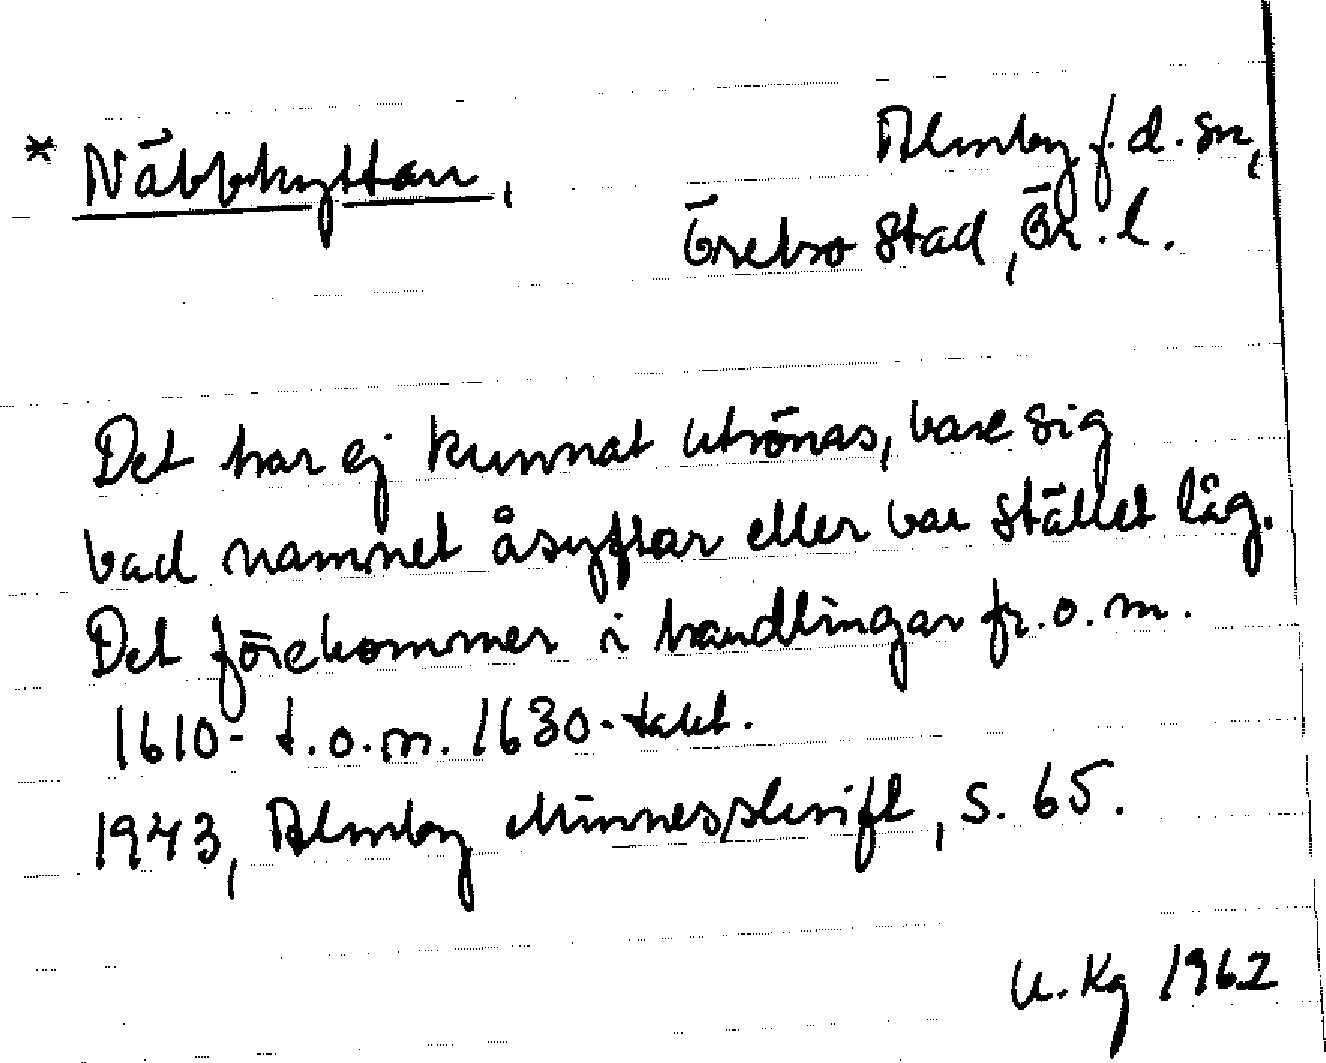 * Näbbhyttan,
Almby f.d. sn,
Örebro stad, Ör.l.
Det har ej kunnat utrönas, vare sig
vad namnet åsyftar eller var stället låg.
Det förekommer i handlingar fr.o.m.
1610- t.o.m. 1630-talet.
1943, Almby Minnesskrift, s. 65.
U. Kg 1962